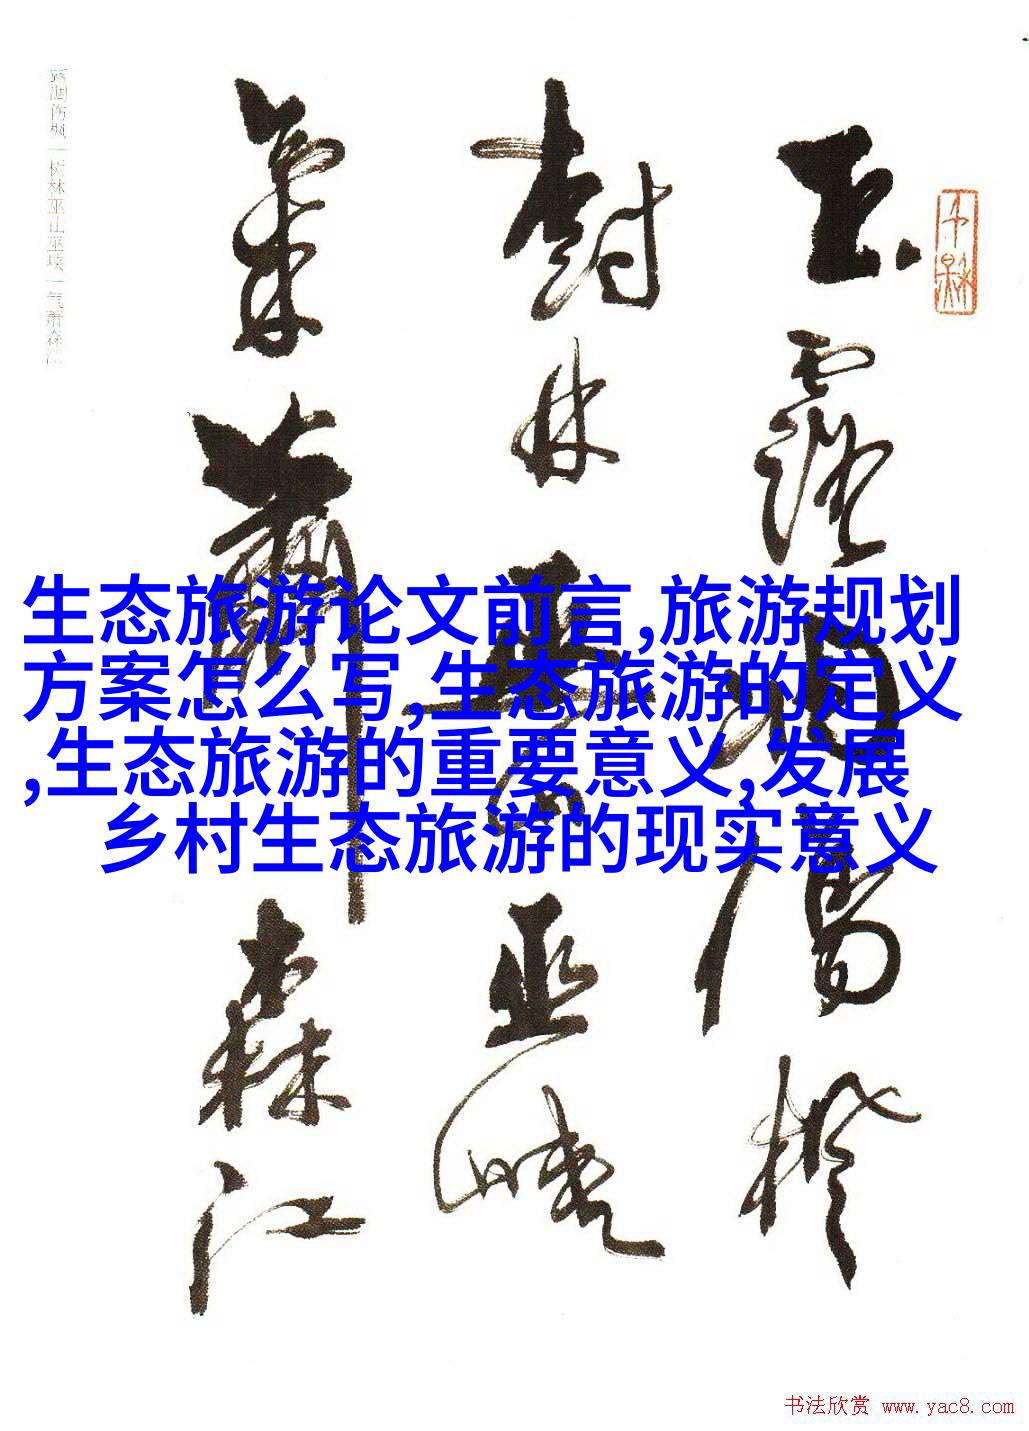 玉露凋伤枫
树林巫山巫峡
气萧森江
生态旅游论文前言,旅游规划
方案怎么写,生态旅游的定义
,生态旅游的重要意义,发展
乡村生态旅游的现实意义
露凋伤枫一树林巫山巫峡一气萧森江
书法欣赏 www.yac8.com